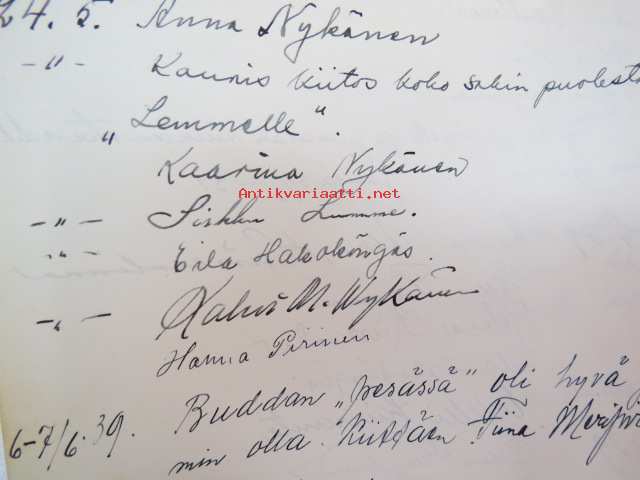 24. 5. Anna Nykänen
-"- Kaunis kiitos koko sakin puolesta
„Lemmelle".
Kaarina Nykänen
Antikvariaatti.net
-"- Sirkku Lumme.
-"- Eila Hakoköngäs.
-"- M. Nykänen
Hanna Pirinen
6-7/6.39. Buddan „pesässä" oli hyvä
min olla. Kiittäen Tiina